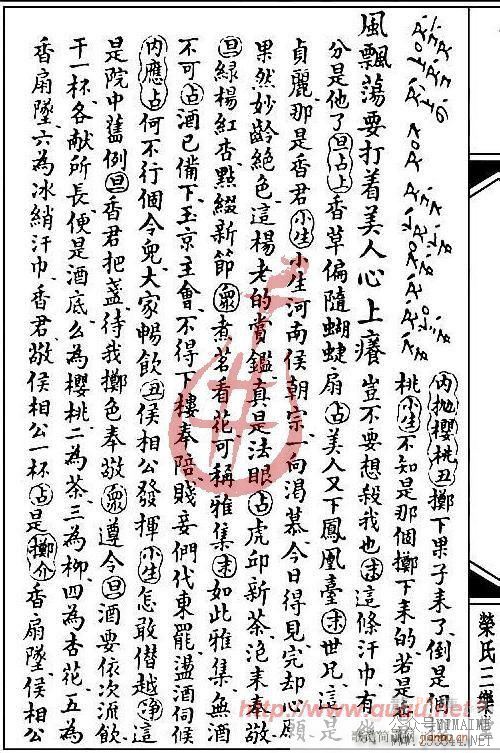 內拋櫻桃丑擲下果子來了倒是個
桃小生不知是那個擲下來的若是香
風飄蕩要打着美人心上癢豈不要想殺我也末這條汗巾有
分是他了旦占上香草偏隨蝴蝶扇占美人又下鳳凰臺末世兄這
貞麗那是香君小生小生河南侯朝宗一向渴慕今日得見完却心願
果然妙齡絕色這楊老的賞鑑真是法眼占虎邱新茶泡來奉敬
旦綠楊紅杏點綴新節眾煮茗看花可稱雅集末如此雅集無酒
不可占酒已備下玉京主會不得下樓奉陪賤妾們代東罷盪酒伺候
內應占何不行個令兒大家暢飲丑侯相公發揮小生怎敢僭越淨這
是院中舊例旦香君把盞待我擲色奉敬眾遵令旦酒要依次流飲
干一杯各献所長便是酒底么為櫻桃二為茶三為柳四為杏花五為
香扇墜六為冰綃汗巾香君敬侯相公一杯占是擲介香扇墜侯相公
榮氏三樂